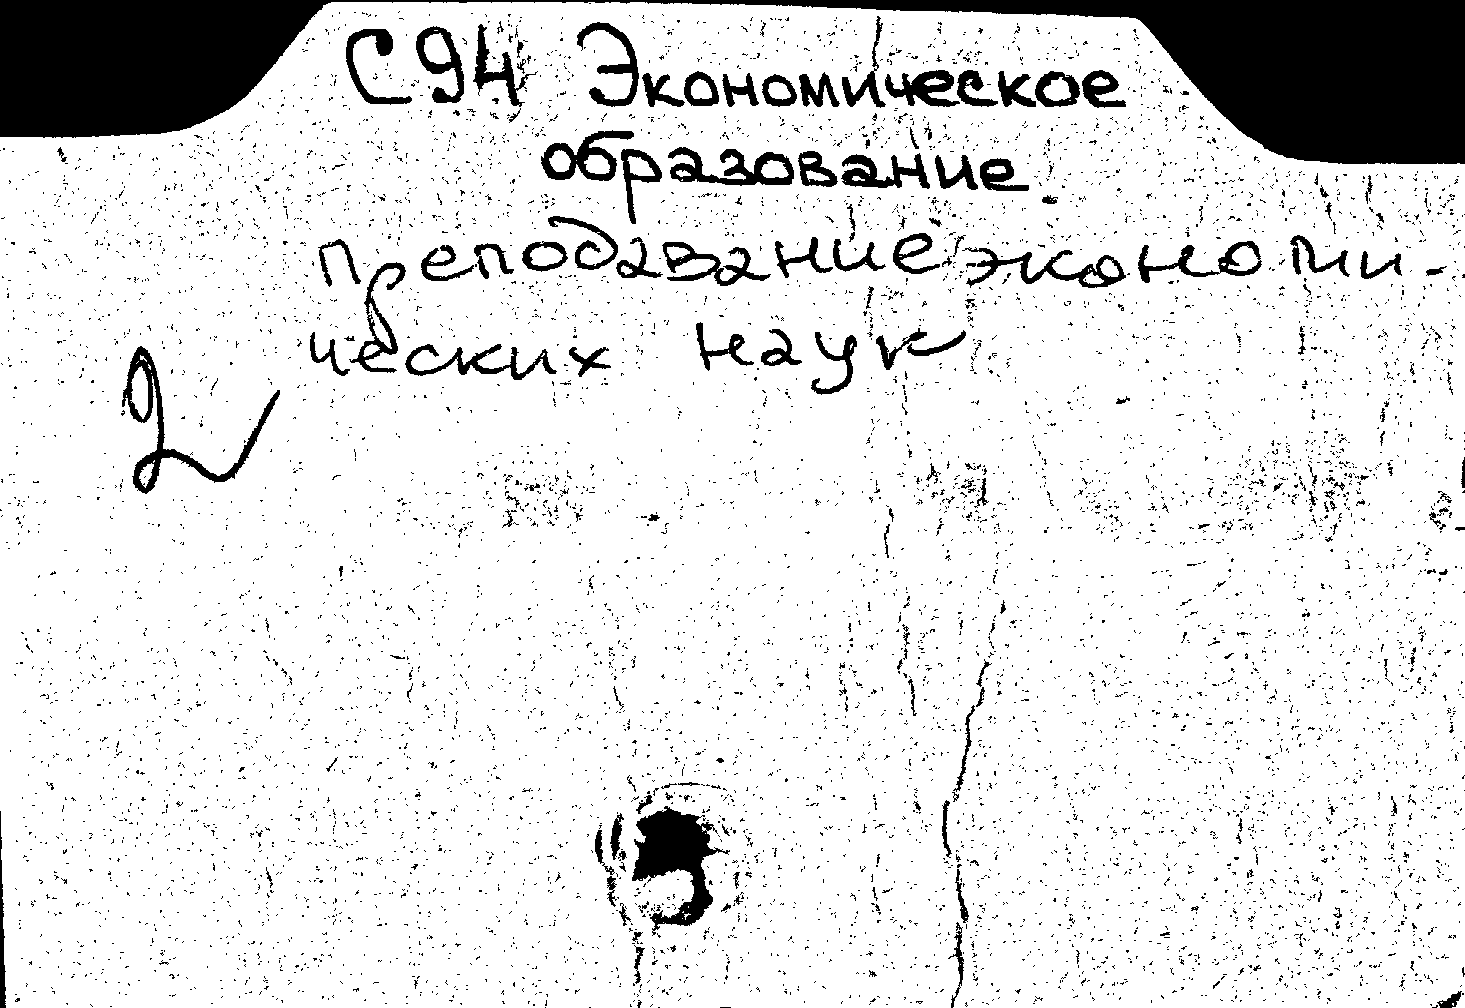 С94 Экономическое
образование
преподавание экономи-
ческих наук